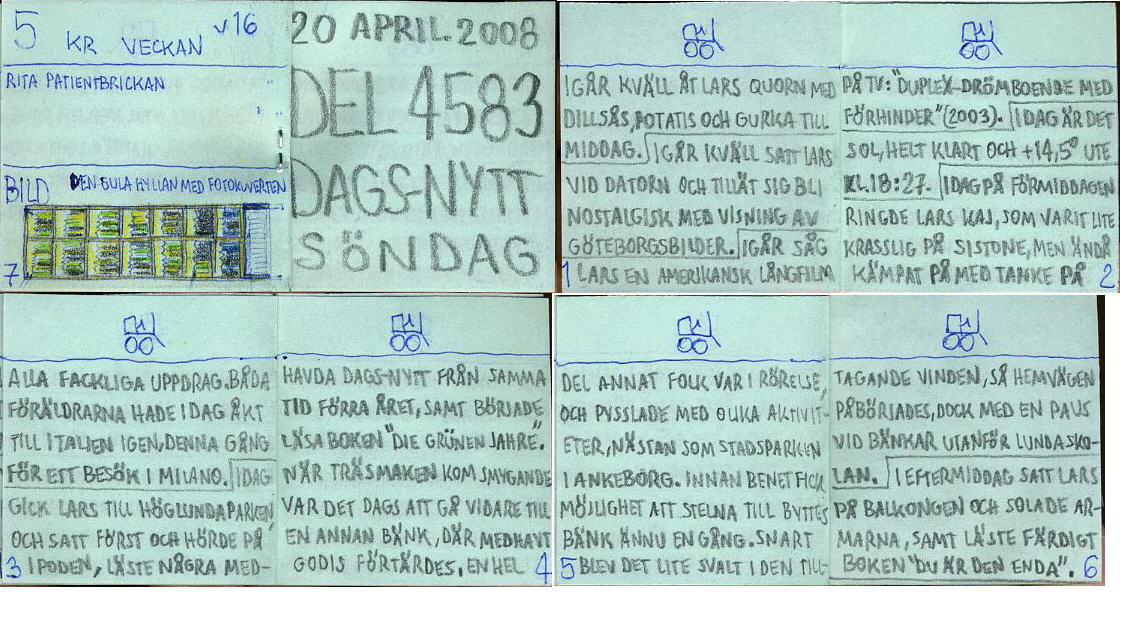 5 KR VECKAN v16
RITA PATIENTBRICKAN
BILD DEN GULA HYLLAN MED FOTOKUVERTEN
7
20 APRIL 2008
DEL 4583
DAGS-NYTT
SÖNDAG
IGÅR KVÄLL ÅT LARS QUORN MED
DILLSÅS, POTATIS OCH GURKA TILL
MIDDAG. IGÅR KVÄLL SATT LARS
VID DATORN OCH TILLÄT SIG BLI
NOSTALGISK MED VISNING AV
GÖTEBORGSBILDER. IGÅR SÅG
1 LARS EN AMERIKANSK LÅNGFILM
PÅ TV: "DUPLEX-DRÖMBOENDE MED
FÖRHINDER" (2003). IDAG ÄR DET
SOL, HELT KLART OCH +14,5° UTE
KL.18:27. IDAG PÅ FÖRMIDDAGEN
RINGDE LARS KAJ, SOM VARIT LITE
KRASSLIG PÅ SISTONE, MEN ÄNDÅ
KÄMPAT PÅ MED TANKE PÅ 2
ALLA FACKLIGA UPPDRAG. BÅDA
FÖRÄLDRARNA HADE IDAG ÅKT
TILL ITALIEN IGEN, DENNA GÅNG
FÖR ETT BESÖK I MILANO. IDAG
GICK LARS TILL HÖGLUNDAPARKEN
OCH SATT FÖRST OCH HÖRDE PÅ
3 IPODEN, LÄSTE NÅGRA MED-
HAVDA DAGS-NYTT FRÅN SAMMA
TID FÖRRA ÅRET, SAMT BÖRJADE
LÄSA BOKEN "DIE GRÜNEN JAHRE".
NÄR TRÄSMAKEN KOM SMYGANDE
VAR DET DAGS ATT GÅ VIDARE TILL
EN ANNAN BÄNK, DÄR MEDHAVT
GODIS FÖRTÄRDES. EN HEL 4
DEL ANNAT FOLK VAR I RÖRELSE,
OCH PYSSLADE MED OLIKA AKTIVIT-
ETER, NÄSTAN SOM STADSPARKEN
I ANKEBORG. INNAN BENET FICK
MÖJLIGHET ATT STELNA TILL BYTTES
BÄNK ÄNNU EN GÅNG. SNART
5 BLEV DET LITE SVALT I DEN TILL-
TAGANDE VINDEN, SÅ HEMVÄGEN
PÅBÖRJADES, DOCK MED EN PAUS
VID BÄNKAR UTANFÖR LUNDASKO-
LAN. I EFTERMIDDAG SATT LARS
PÅ BALKONGEN OCH SOLADE AR-
MARNA, SAMT LÄSTE FÄRDIGT
BOKEN "DU ÄR DEN ENDA". 6